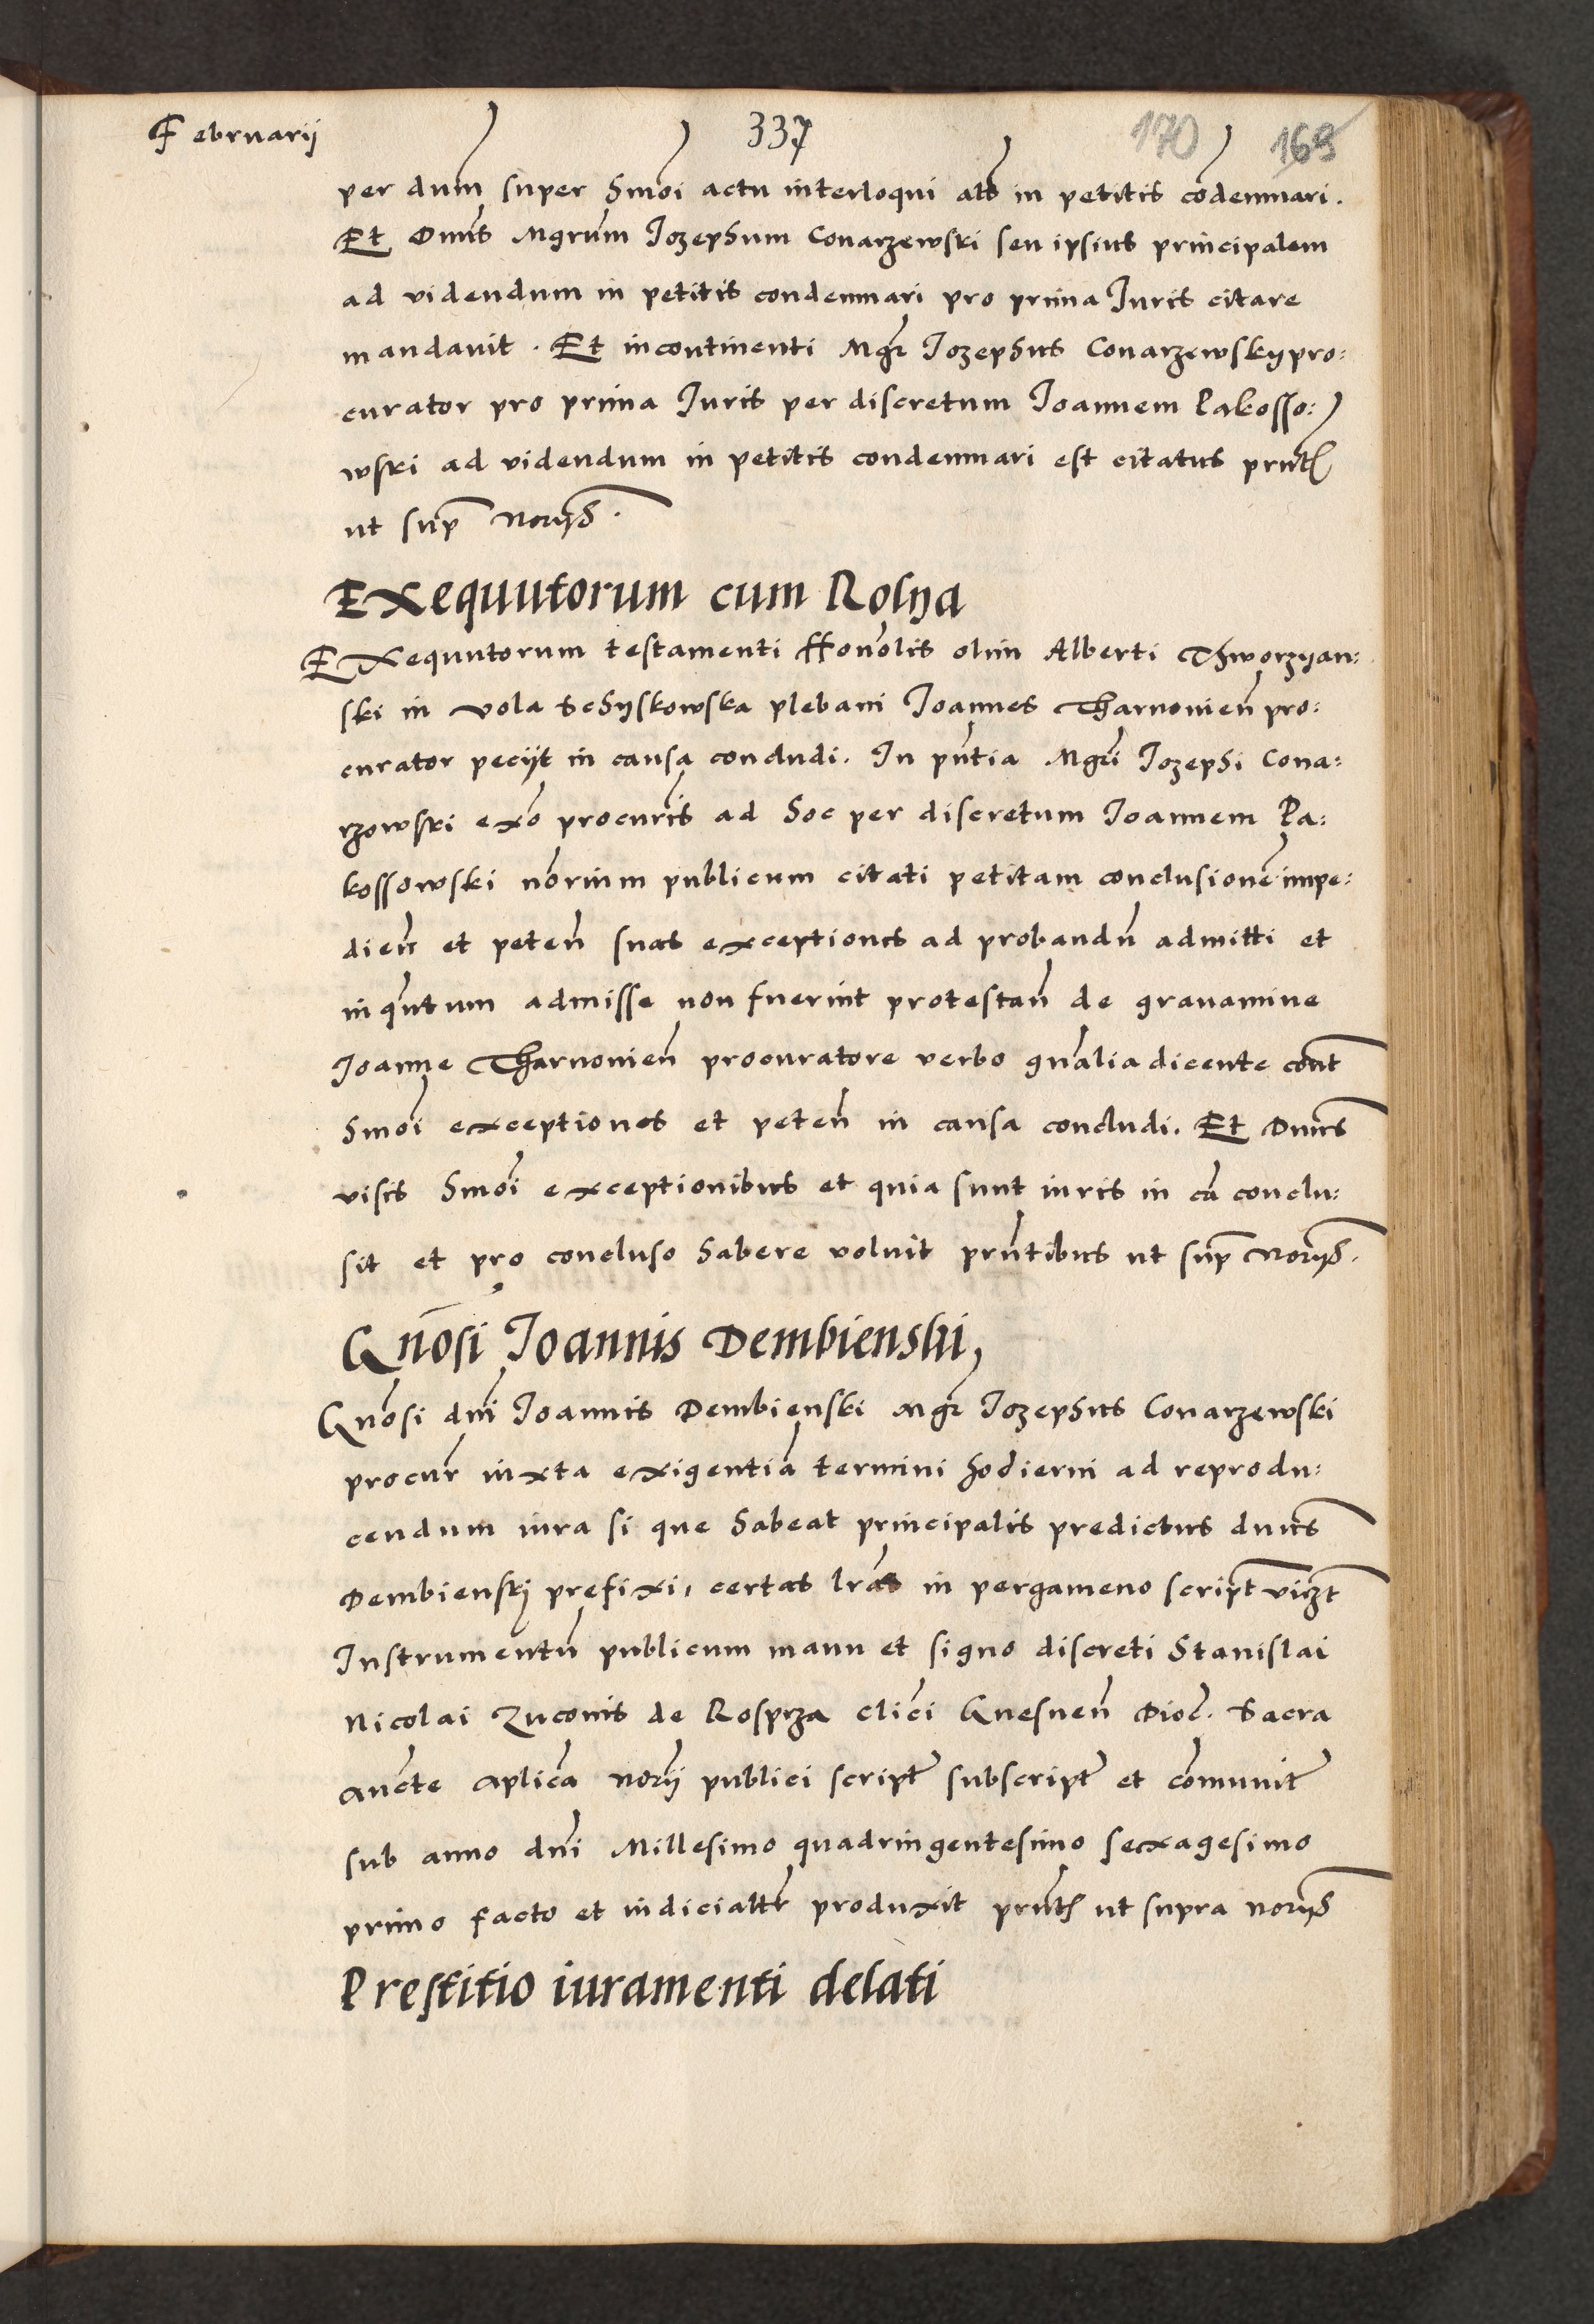 Februarij
337
170 169
per dum super hmoi actu interloqui als in petitis condemnari.
Et Dnus Mgrum Jozephum Conarzewski seu ipsius principalem
ad videndum in petitis condemnari pro prima Juris citare
mandavit. Et incontinenti Mgr Jozephus Conarzewskij pro:
curator pro prima Juris per discretum Joannem Pakosso:
wski ad videndum in petitis condemnari est citatus pntb
ut sup norijs.
Exequutorum cum Rolya
Exequutorum testamenti Honolis olim Alberti Thworzyan:
ski in Vola Schyskowska plebani Joannes Tharnonien pro:
curator pecijt in causa concludi. In pntia Mgri Jozephi Cona:
rzowski exo procuris ad hoc per discretum Joannem Pa:
kossowski norium publicum citati petitam conclusione impe:
dien et peten suas exceptiones ad probandu admitti et
inquntum admisse non fuerint protestan de gravamine
Joanne Tharnonien procuratore verbo gnalia dicente cont
hmoi exceptiones et peten in causa concludi. Et Dnus
visis hmoi exceptionibus et quia sunt iuris in ca conclu:
sit et pro concluso habere voluit prntibus ut sup norijs.
Gnosi Joannis Dembienski,
Gnosi dni Joannis Dembienski Mgr Jozephus Conarzewski
procur iuxta exigentia termini hodierni ad reprodu:
cendum iura si que habeat principalis predictus dnus
Dembienskj prefixi, certas lras in pergameno script vizt
Instrumentu publicum manu et signo discreti Stanislai
Nicolai Zuconis de Rosprza clici Gnesnen Dioc. Sacra
aucte aplica norij publici script subscript et comunit
sub anno dni Millesimo quadringentesimo sexagesimo
primo facto et iudicialtr produxit prntb ut supra norijs
Prestitio iuramenti delati